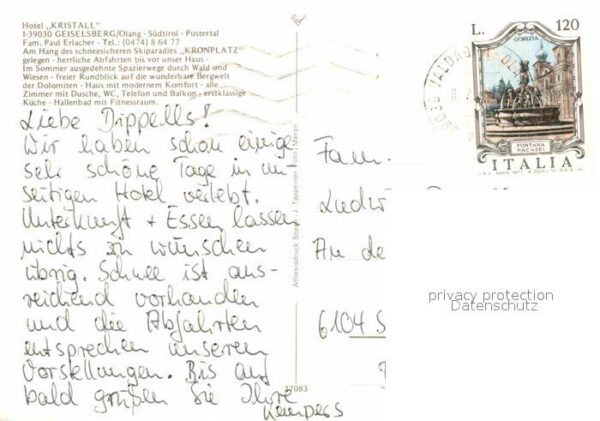 Hotel „KRISTALL"
I-39030 GEISELSBERG/Olang - Südtirol - Pustertal
Fam. Paul Erlacher - Tel.: (0474) 8 64 77
Am Hang des schneesicheren Skiparadies „KRONPLATZ"
gelegen - herrliche Abfahrten bis vor unser Haus -
Im Sommer ausgedehnte Spazierwege durch Wald und
Wiesen - freier Rundblick auf die wunderbare Bergwelt
der Dolomiten - Haus mit modernem Komfort - alle
Zimmer mit Dusche, WC, Telefon und Balkon - erstklassige
Küche - Hallenbad mit Fitnessraum.
Liebe Dippells!
Wir haben schon einige
sehr schöne Tage in un-
seitigen Hotel verlebt.
Unterkunft + Essen lassen
nichts zu wünschen
übrig. Schnee ist aus-
reichend vorhanden
und die Abfahrten
entsprechen unseren
Vorstellungen. Bis auf
bald grüßen Sie Ihre
Kempers
37083
L. 120
GORIZIA
FONTANA
PACASSI
ITALIA
Fam.
An de
6104 S
privacy protection
Datenschutz